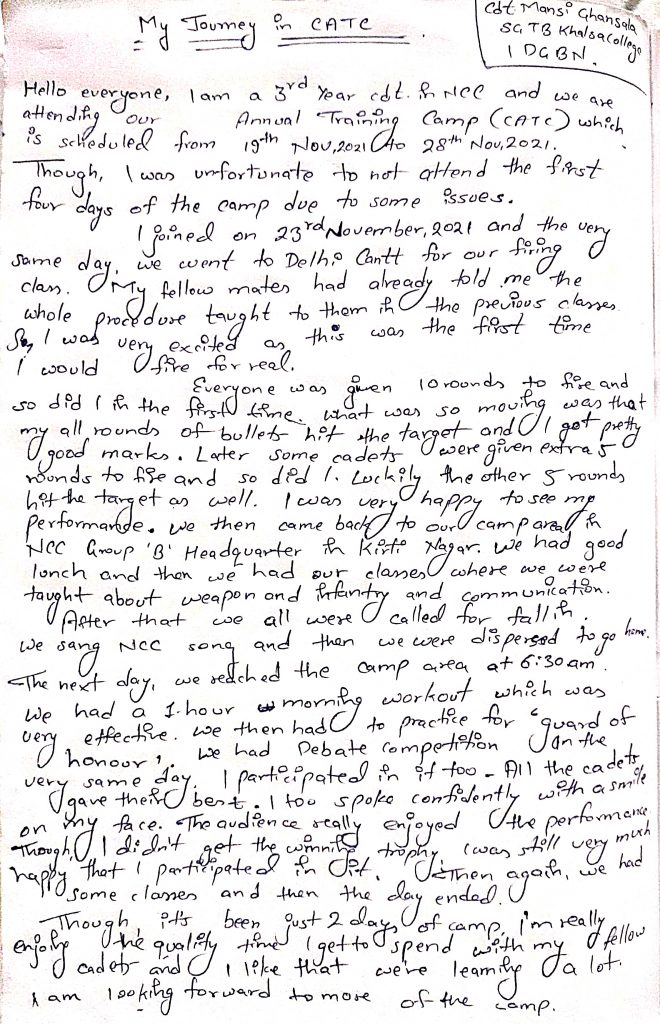 My Journey in CATC
Cdt Mansi Ghansala
SGTB Khalsa College
1 DGBN.
Hello everyone, I am a 3rd Year cdt. in NCC and we are
attending our Annual Training Camp (CATC) which
is scheduled from 19th Nov,2021 to 28th Nov,2021.
Though, I was unfortunate to not attend the first
four days of the camp due to some issues.
I joined on 23rd November, 2021 and the very
same day, we went to Delhi Cantt for our firing
class. My fellow mates had already told me the
whole procedure taught to them in the previous classes.
So, I was very excited as this was the first time
I would fire for real.
Everyone was given 10 rounds to fire and
so did I in the first time. What was so moving was that
my all rounds of bullets hit the target and I got pretty
good marks. Later some cadets were given extra 5
rounds to fire and so did I. Luckily the other 5 rounds
hit the target as well. I was very happy to see my
performance. We then came back to our camp area in
NCC Group 'B' Headquarter in Kirti Nagar. We had good
lunch and then we had our classes where we were
taught about weapon and infantry and communication.
After that we all were called for fall in.
We sang NCC song and then we were dispersed to go home.
The next day, we reached the camp area at 6:30 am.
We had a 1-hour morning workout which was
very effective. We then had to practice for "guard of
honour'. We had Debate competition on the
very same day. I participated in it too - All the cadets
gave their best. I too spoke confidently with a smile
on my face. The audience really enjoyed the performance
Though, I didn't get the winning trophy, I was still very much
happy that I participated in it. Then again, we had
some classes and then the day ended.
Though it's been just 2 days of camp, I'm really
enjoying the quality time I get to spend with my fellow
cadets and I like that we're learning a lot.
I am looking forward to more of the camp.